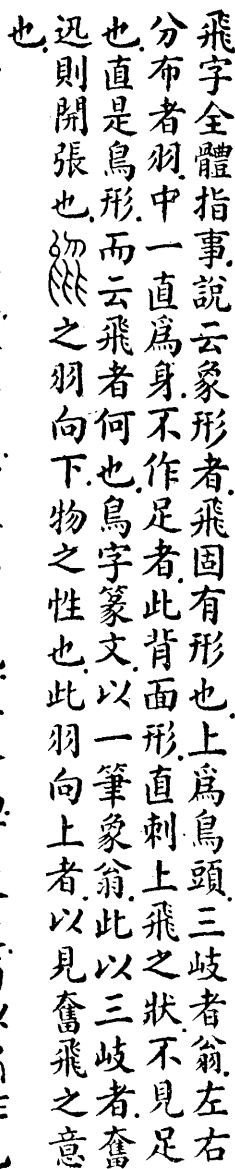 飛字全體指事。說云象形者。飛固有形也。上爲鳥頭。三岐者翁。左右
分布者羽。中一直爲身。不作足者。此背面形。直刺上飛之狀。不見足
也。直是鳥形。而云飛者何也。鳥字篆文。以一筆象翁。此以三岐者。奮
迅則開張也。之羽向下。物之性也。此羽向上者。以見奮飛之意
也。